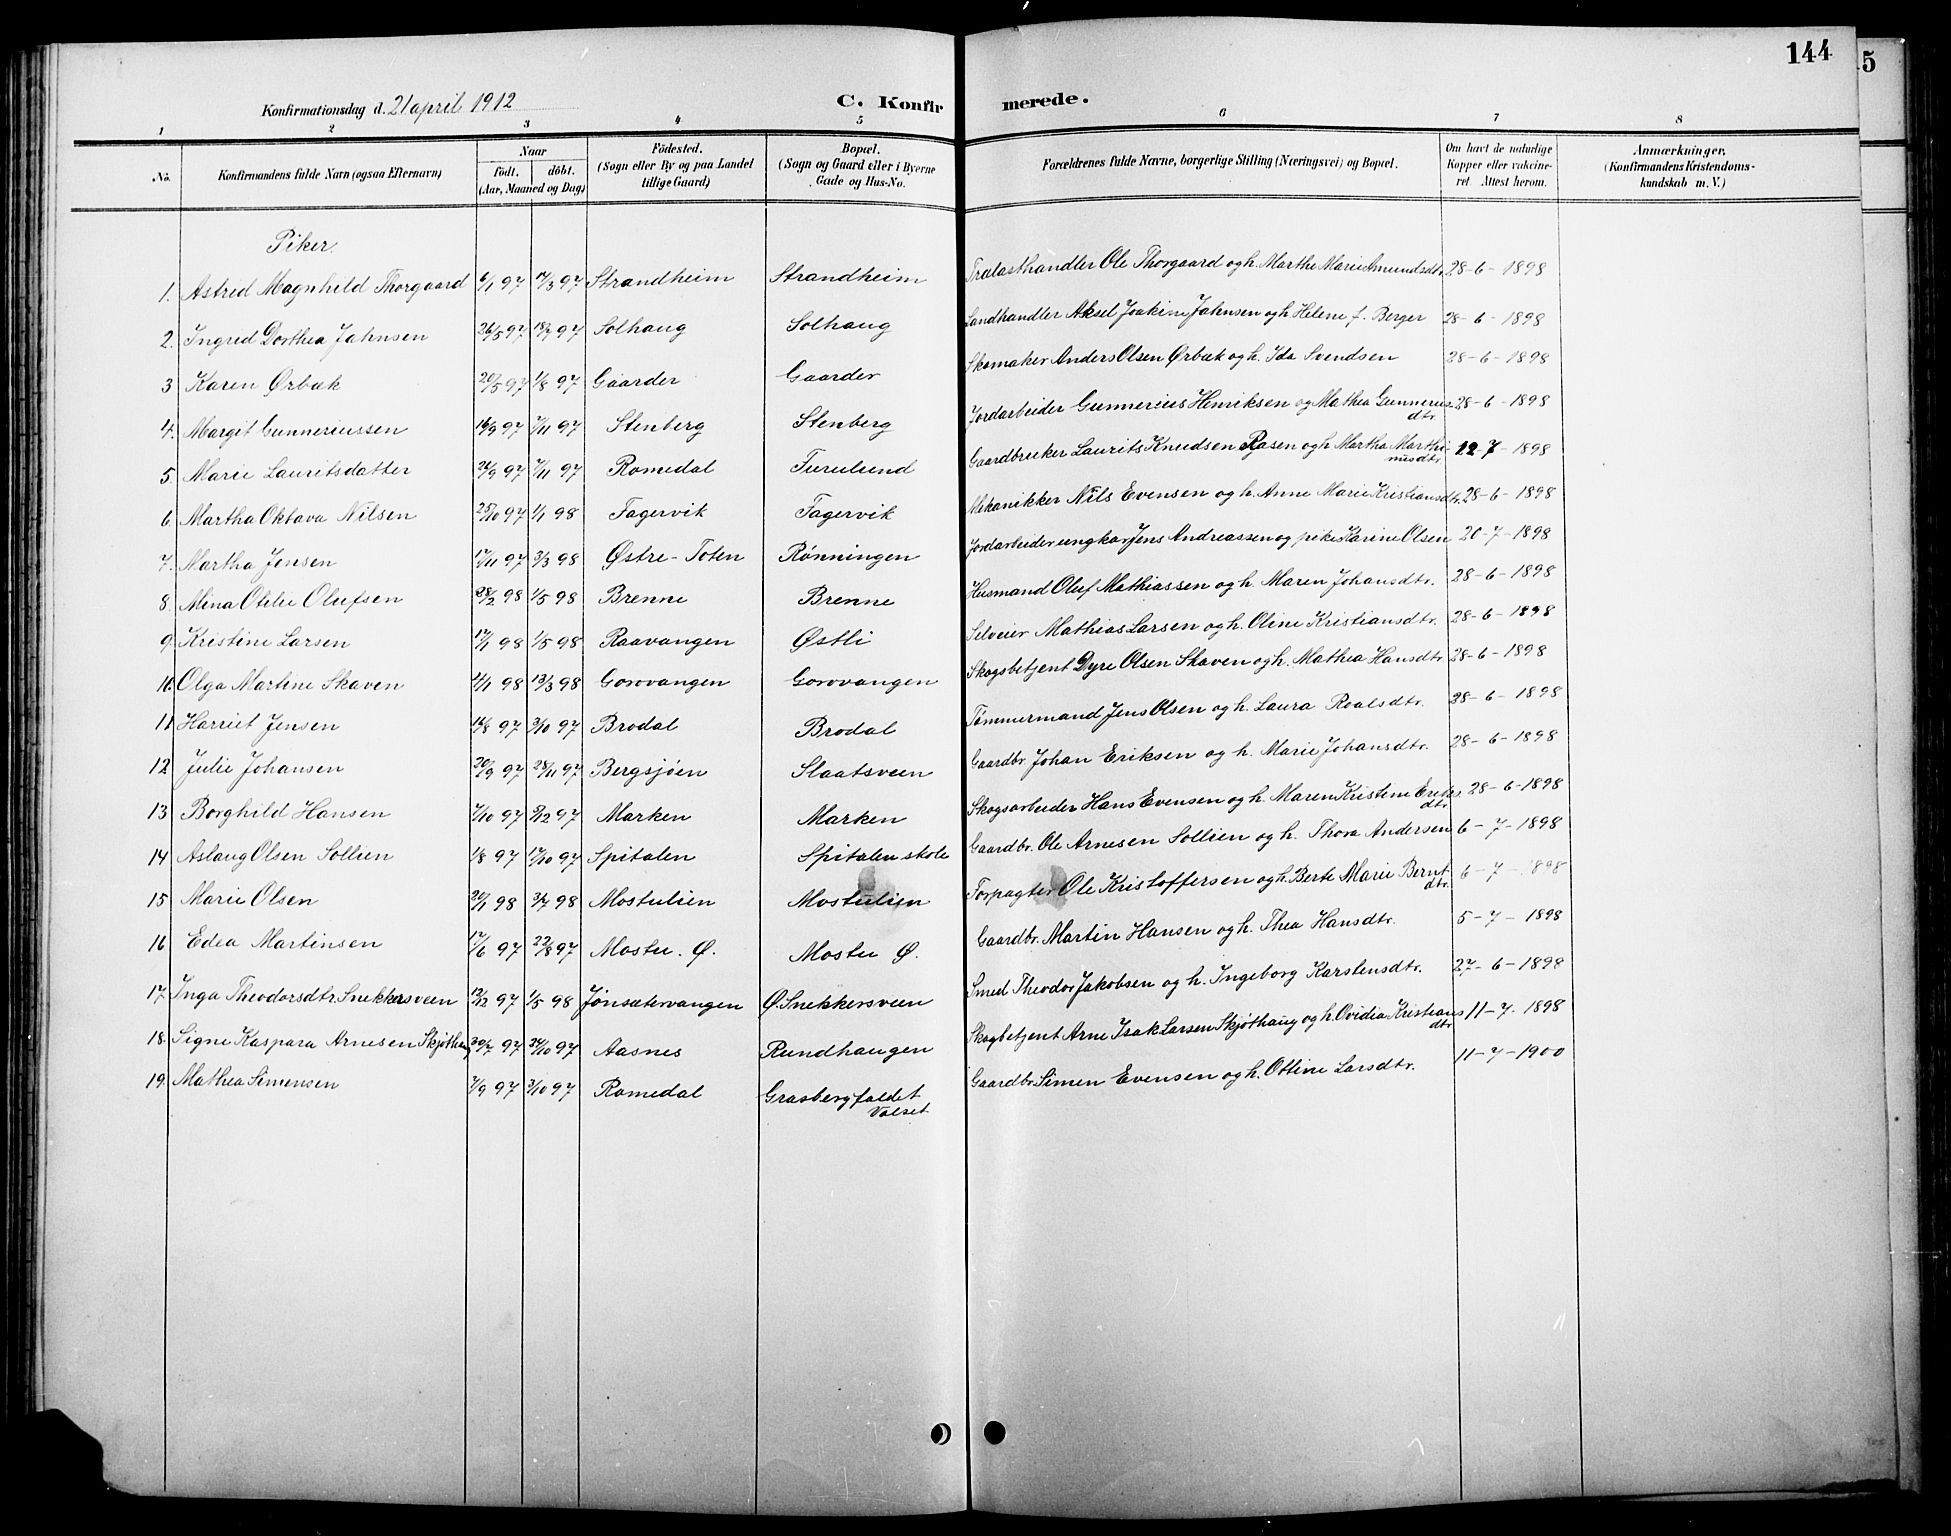 144
5
Konfirmationsdag d. 21 april 1912
C. Konfirmerede.
1 2 3 4 5 6 7 8
No. Konfirmandens fulde Navn (ogsaa Efternavn) Naar födt. döbt. (Aar, Maaned og Dag) Födested. (Sogn eller By og paa Landet tillige Gaard) Bopæl. (Sogn og Gaard eller i Byerne Gade og Hus-No. Forældrenes fulde Navne, borgerlige Stilling (Næringsvei) og Bopæl. Om havt de naturlige Kopper eller vakcineret. Attest herom. Anmærkninger, (Konfirmandens Kristendomskundskab m. V.)
Piker.
1. Astrid Magnhild Thorgaard 6/1 97 17/3 97 Strandheim Strandheim Trælasthandler Ole Thorgaard og h. Marthe Marie Amundsdtr. 28-6-1898
2. Ingrid Dorthea Jahnsen 26/5 97 18/7 97 Solhaug Solhaug Landhandler Aksel Joakim Jahnsen og h Helene f. Berger 28-6-1898
3 Karen Ørbæk 20/5 97 1/8 97 Gaarder Gaarder Skomaker Anders Olsen Ørbæk og h. Ida Svendsen 28-6-1898
4. Margit Gunneriussen 16/9 97 7/11 97 Stenberg Stenberg Jordarbeider Gunnerius Henriksen og Mathea Gunneriusdtr. 28-6-1898
5. Marie Lauritsdatter 26/9 97 7/11 97 Romedal Furulund Gaardbruker Laurits Knudsen Rasen og h Martha Marthinusdtr 12-7-1898
6. Martha Oktava Nilsen 25/10 97 1/1 98 Fagervik Fagervik Mekanikker Nils Evensen og h. Anne Marie Kristiansdtr. 28-6-1898
7. Martha Jensen 17/11 97 3/3 98 Østre-Toten Rønningen Jordarbeider ungkar Jens Andreassen og pike Karine Olsen 20-7-1898
8. Mina Otilie Olufsen 28/2 98 1/5 98 Brenne Brenne Husmand Oluf Mathiassen og h. Maren Johansdtr. 28-6-1898
9. Kristine Larsen 17/1 98 1/5 98 Raavangen Østli Selveier Mathias Larsen og h. Oline Kristiansdtr. 28-6-1898
10. Olga Martine Skaven 4/1 98 13/3 98 Gorovangen Gorovangen Skogsbetjent Dyre Olsen Skaven og h. Mathea Hansdtr 28-6-1898
11 Harriet Jensen 14/8 97 3/10 97 Brodal Brodal Tømmermand Jens Olsen og h. Laura Roalsdtr. 28-6-1898
12 Julie Johansen 20/9 97 28/11 97 Bergsjøen Slaatsveen Gaardbr. Johan Eriksen og h. Marie Johansdtr. 28-6-1898
13 Borghild Hansen 7/10 97 5/12 97 Marken Marken Skogsarbeider Hans Evensen og h. Maren Kristine Eriksdtr. 28-6-1898
14 Aslaug Olsen Sollien 1/8 97 17/10 97 Spitalen Spitalen skole Gaardbr. Ole Arnesen Sollien og h. Thora Andersen 6-7-1898
15 Marie Olsen 20/1 98 3/7 98 Mostulien Mostulien Forpagter Ole Kristoffersen og h. Berte Marie Berntdtr. 6-7-1898
16 Edea Martinsen 17/6 97 22/8 97 Mostu. Ø. Mostu Ø. Gaardbr. Martin Hansen og h. Thea Hansdtr. 5-7-1898
17. Inga Theodorsdtr. Snekkersveen 12/12 97 1/5 98 Jønsætervangen Ø. Snekkersveen Smed Theodor Jakobsen og h. Ingeborg Karstensdtr. 27-6-1898
18. Signe Kaspara Arnesen Skjøthaug 30/7 97 24/10 97 Aasnes Rundhaugen Skogbetjent Arne Isak Larsen Skjøthaug og h. Ovidia Kristiansdtr 11-7-1898
19. Mathea Simensen 7/9 97 3/10 97 Romedal Grasbergfaldet Valset Gaardbr. Simen Evensen og h. Otline Larsdtr. 11-7-1900